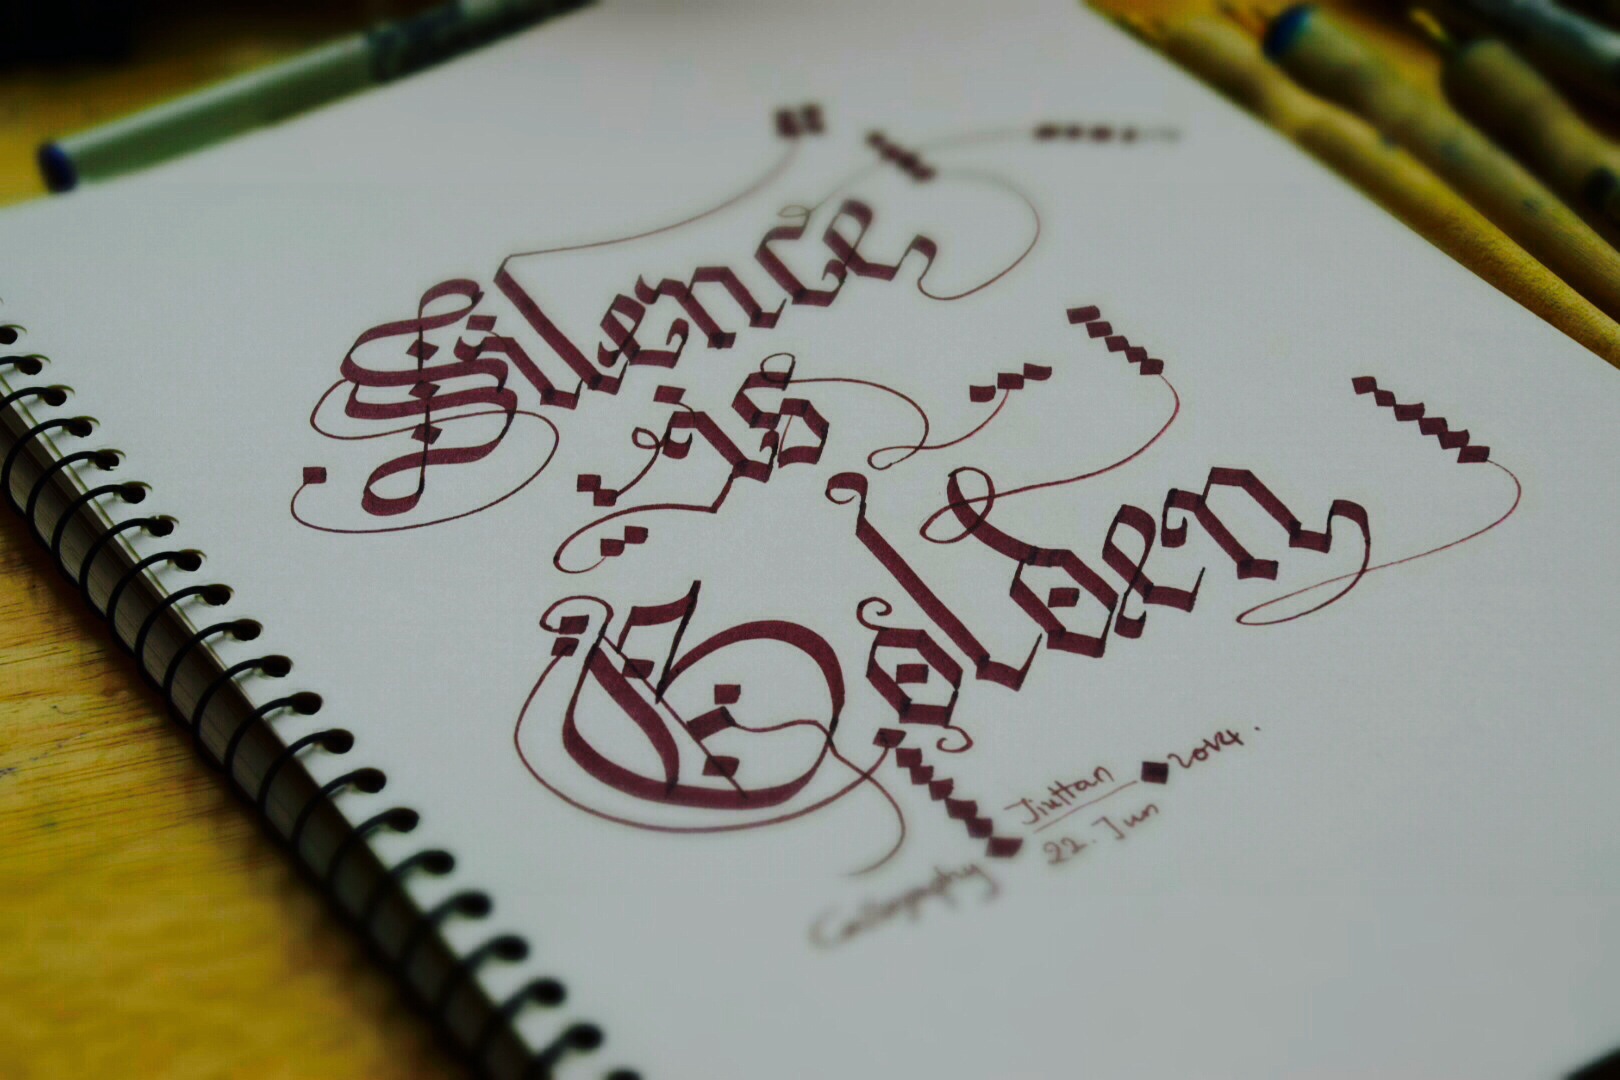 Silence
is
Golden
Jiuttan 2014.
22. Jun
Calligraphy